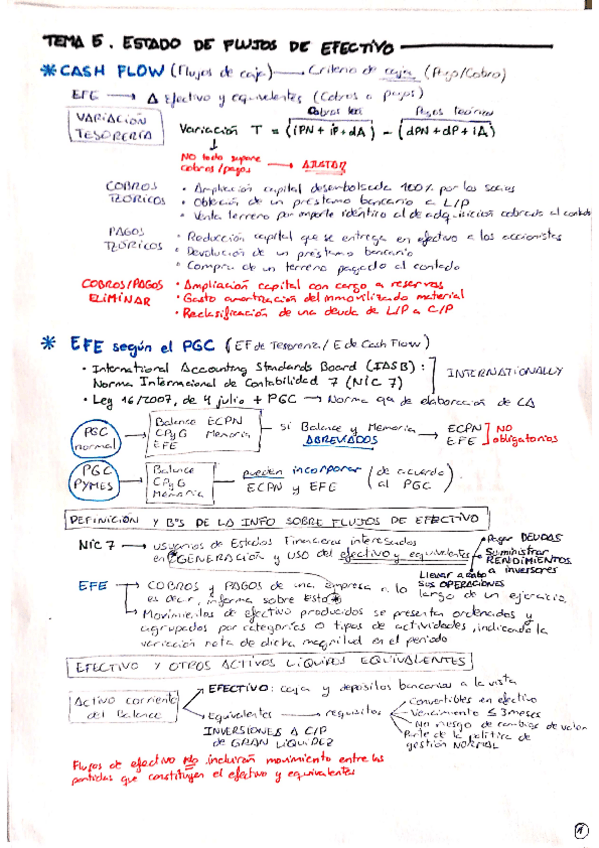 TEMA 5. ESTADO DE FLUJOS DE EFECTIVO
* CASH FLOW (Flujos de caja) → Criterio de caja (Pago/Cobro)
EFE → Δ Efectivo y equivalentes (Cobros o pagos)
VARIACIÓN TESORERÍA
Cobros teór. Pagos teóricos
Variación T = (iPN + iP + dA) - (dPN + dP + iA)
↓
No todo supone cobros/pagos → AJUSTAR
COBROS TEÓRICOS
• Ampliación capital desembolsada 100% por los socios
• Obtención de un préstamo bancario a L/P
• Venta terreno por importe idéntico al de adquisición cobrado al contado
PAGOS TEÓRICOS
• Reducción capital que se entrega en efectivo a los accionistas
• Devolución de un préstamo bancario
• Compra de un terreno pagado al contado
COBROS/PAGOS ELIMINAR
• Ampliación capital con cargo a reservas
• Gasto amortización del inmovilizado material
• Reclasificación de una deuda de L/P a C/P
* EFE según el PGC (EF de Tesorería / E de Cash Flow)
• International Accounting Standards Board (IASB):
Norma Internacional de Contabilidad 7 (NIC 7)
INTERNATIONALLY
• Ley 16/2007, de 4 julio + PGC → Norma 9ª de elaboración de CA
PGC normal → Balance ECPN
CPyG Memoria
EFE
si Balance y Memoria ABREVIADOS → ECPN
EFE
NO obligatorios
PGC PYMES → Balance
CPyG
Memoria
pueden incorporar ECPN y EFE (de acuerdo al PGC)
DEFINICIÓN Y Bºs DE LA INFO SOBRE FLUJOS DE EFECTIVO
NIC 7 → usuarios de Estados Financieros interesados
en GENERACIÓN y USO del efectivo y equivalentes
• Pagar DEUDAS
• Suministrar RENDIMIENTOS a inversores
Llevar a cabo SUS OPERACIONES
EFE → COBROS y PAGOS de una empresa a lo largo de un ejercicio,
es decir, informa sobre esta *
→ Movimientos de efectivo producidos se presenta ordenados y
agrupados por categorías o tipos de actividades, indicando la
variación neta de dicha magnitud en el periodo
EFECTIVO Y OTROS ACTIVOS LÍQUIDOS EQUIVALENTES
Activo corriente del Balance
→ EFECTIVO: caja y depósitos bancarios a la vista
→ Equivalentes → requisitos
INVERSIONES A C/P
de GRAN LIQUIDEZ
Convertibles en efectivo
Vencimiento ≤ 3 meses
No riesgo de cambios de valor
Parte de la política de gestión NORMAL
Flujos de efectivo No incluirán movimiento entre las
partidas que constituyen el efectivo y equivalentes
1